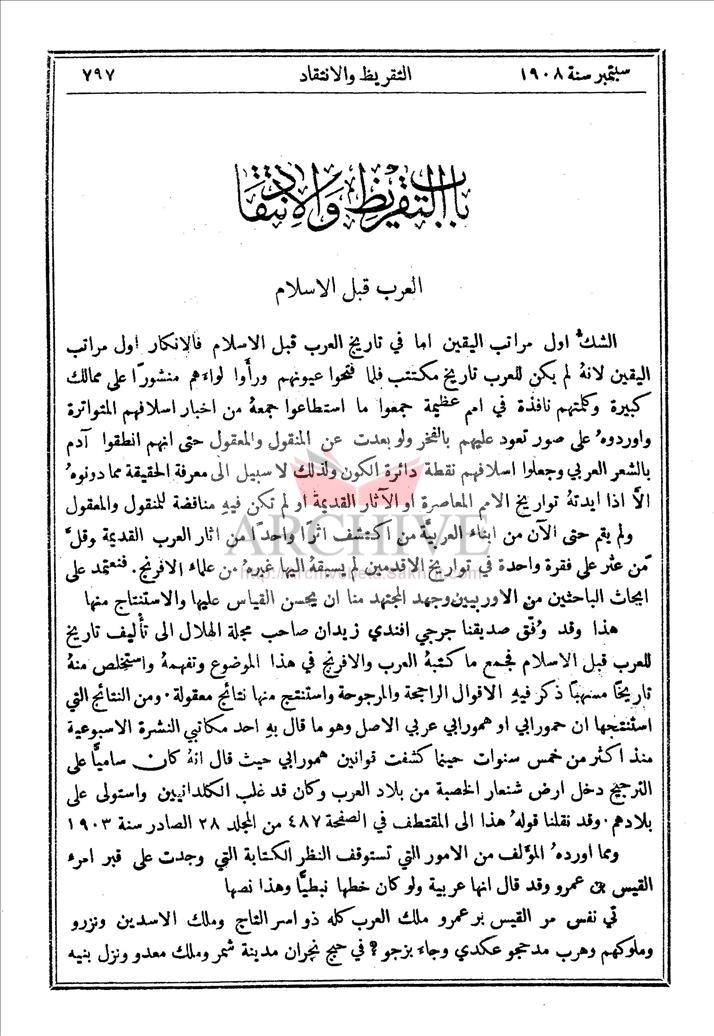 سبتمبر سنة ١٩٠٨ التقريظ والانتقاد ٧٩٧
باب التقريظ والانتقاد
العرب قبل الاسلام
الشك اول مراتب اليقين اما في تاريخ العرب قبل الاسلام فالانكار اول مراتب
اليقين لانهُ لم يكن للعرب تاريخ مكتتب فلما فتحوا عيونهم ورأوا لواءهم منشورًا على ممالك
كبيرة وكلمتهم نافذة في امم عظيمة جمعوا ما استطاعوا جمعهُ من اخبار اسلافهم المتواترة
واوردوهُ على صور تعود عليهم بالفخر ولو بعدت عن المنقول والمعقول حتى انهم انطقوا آدم
بالشعر العربي وجعلوا اسلافهم نقطة دائرة الكون ولذلك لا سبيل الى معرفة الحقيقة مما دونوهُ
الاَّ اذا ايدتهُ تواريخ الامم المعاصرة او الآثار القديمة او لم تكن فيهِ مناقضة للمنقول والمعقول
ARCHIVE
ولم يقم حتى الآن من ابناء العربية من اكتشف اثرًا واحدًا من اثار العرب القديمة وقلَّ
مَن عثر على فقرة واحدة في تواريخ الاقدمين لم يسبقهُ اليها غيرهُ من علماء الافرنج. فنعتمد على
http://archivebeta.Sakhrit.com
ابحاث الباحثين من الاوربيين وجهد المجتهد منا ان يحسن القياس عليها والاستنتاج منها
هذا وقد وُفّق صديقنا جرجي افندي زيدان صاحب مجلة الهلال الى تأليف تاريخ
للعرب قبل الاسلام فجمع ما كتبهُ العرب والافرنج في هذا الموضوع وتفهمهُ واستخلص منهُ
تاريخًا مسهبًا ذكر فيهِ الاقوال الراجحة والمرجوحة واستنتج منها نتائج معقولة. ومن النتائج التي
استنتجها ان حمورابي او همورابي عربي الاصل وهو ما قال بهِ احد مكاتبي النشرة الاسبوعية
منذ اكثر من خمس سنوات حينما كشفت قوانين همورابي حيث قال انهُ كان ساميًّا على
الترجيح دخل ارض شنعار الخصبة من بلاد العرب وكان قد غلب الكلدانيين واستولى على
بلادهم. وقد نقلنا قولهُ هذا الى المقتطف في الصفحة ٤٨٧ من المجلد ٢٨ الصادر سنة ١٩٠٣
ومما اوردهُ المؤلف من الامور التي تستوقف النظر الكتابة التي وجدت على قبر امرء
القيس بن عمرو وقد قال انها عربية ولو كان خطها نبطيًّا وهذا نصها
تي نفس مر القيس بر عمرو ملك العرب كله ذو اسر التاج وملك الاسدين ونزرو
وملوكهم وهرب مدحجو عكدي وجاء بزجو ؟ في حبج نجران مدينة شمر وملك معدو ونزل بنيه